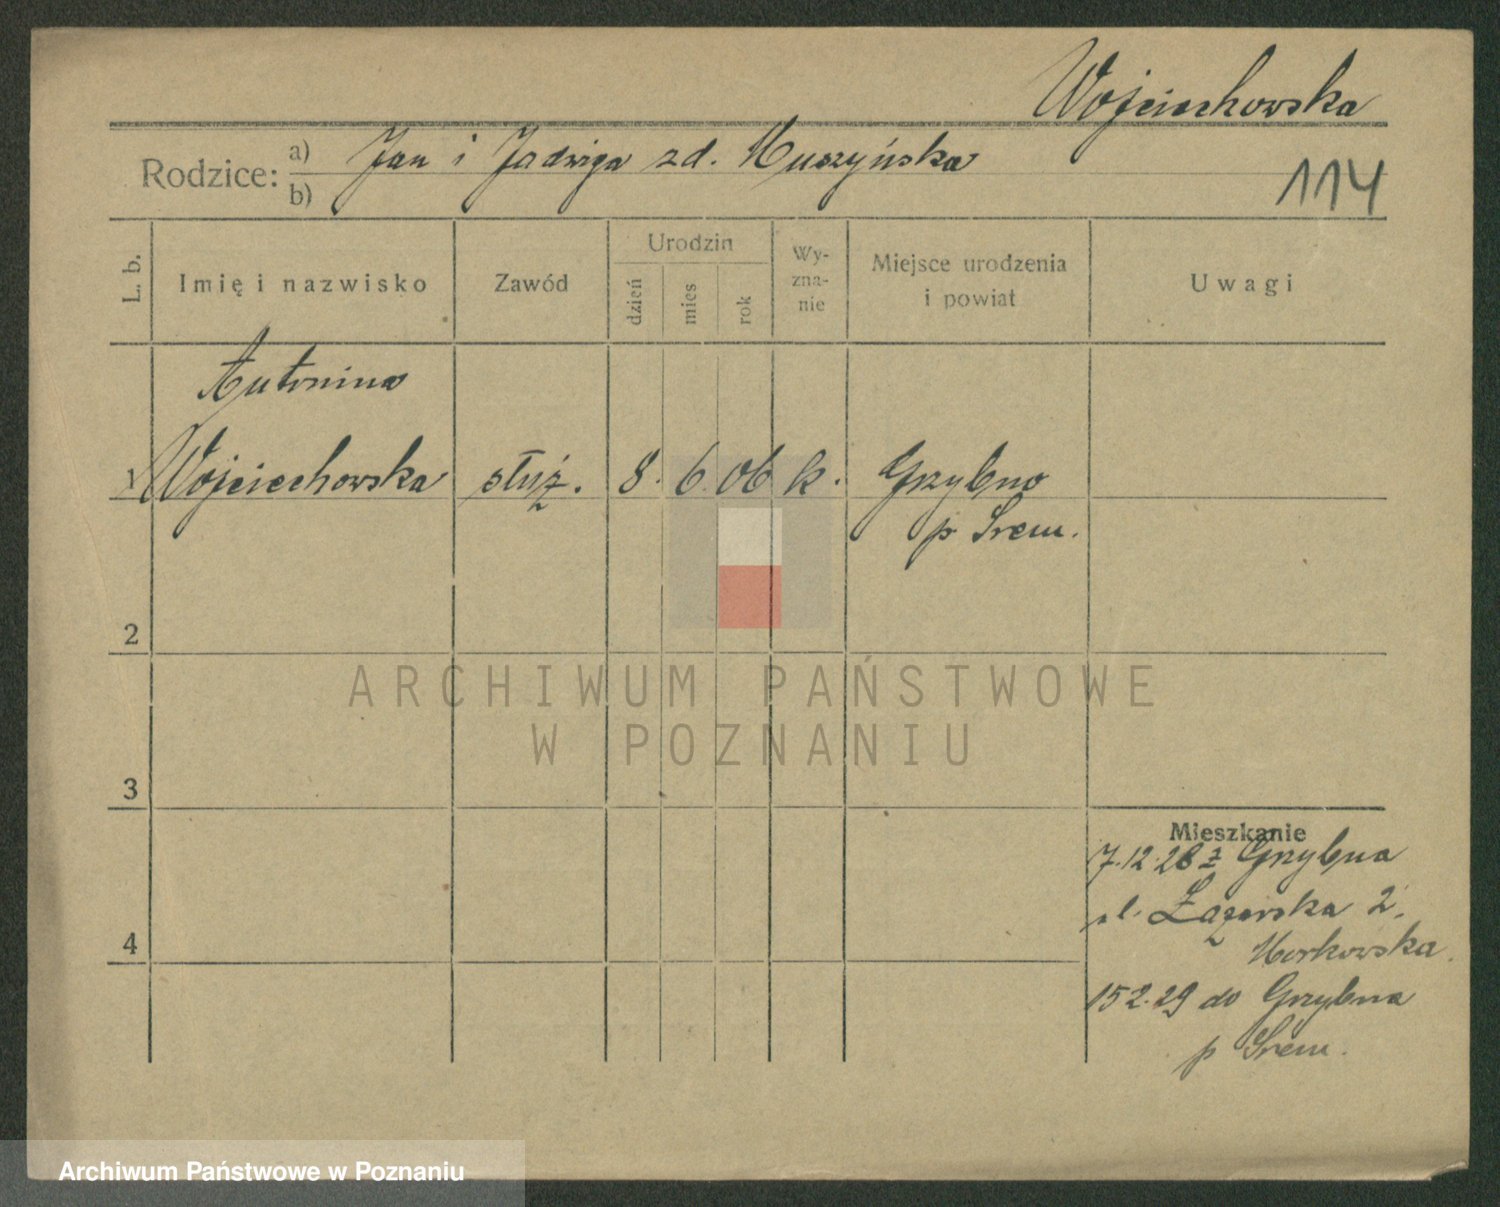 Wojciechowska
Rodzice: a) Jan i Jadwiga zd. Muszyńska
b)
114
L. b.
Imię i nazwisko
Zawód
Urodzin
dzień
mies
rok
Wy-
zna-
nie
Miejsce urodzenia
i powiat
Uwagi
Antonina
1 Wojciechowska służ. 8. 6. 06 k. Grzybno
p Śrem.
2
3
4
Mieszkanie
7.12.28 z Grzybna
ul. Łazarska 2.
15 2.29 do Grzybna
p Śrem.
ARCHIWUM PAŃSTWOWE
W POZNANIU
Archiwum Państwowe w Poznaniu